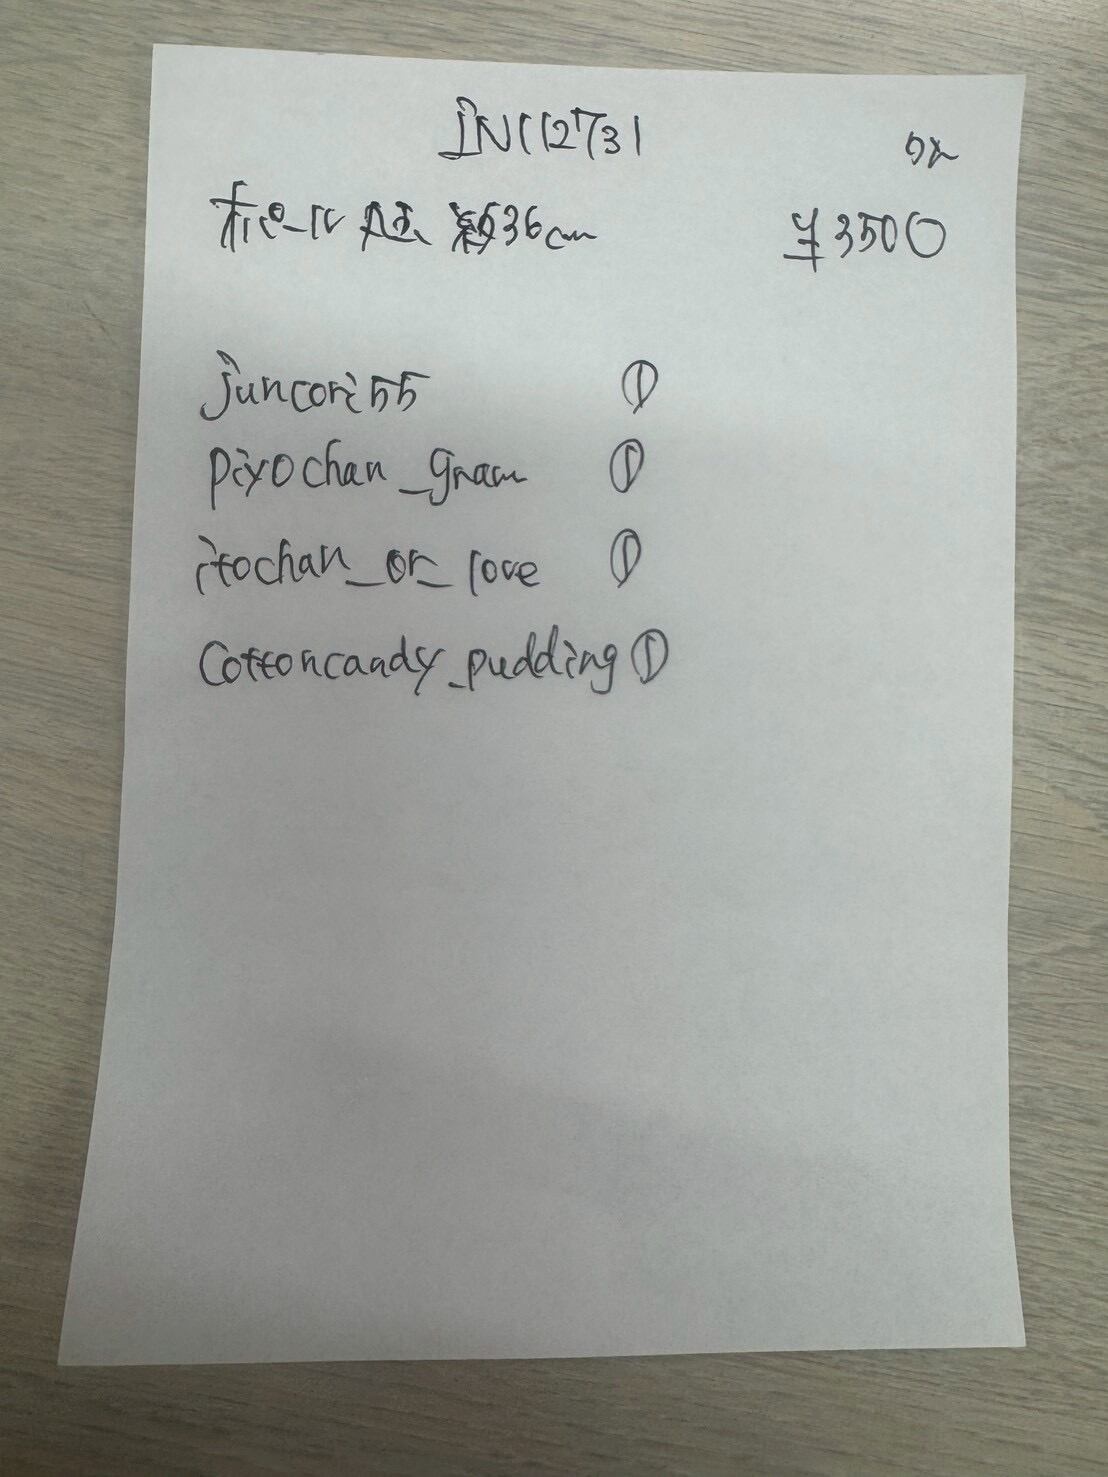 IN112731
ポピール 約36cm ¥3500
juncori55 ①
piyochan_gram ①
itochan_or_love ①
Cottoncandy_pudding ①